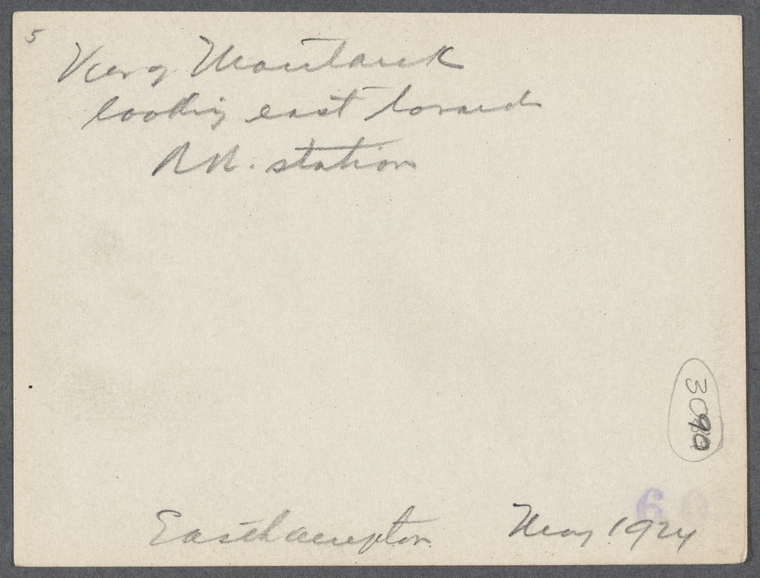 5
View of Montauk
looking east toward
R.R. station
3090
6
Easthampton May 1924